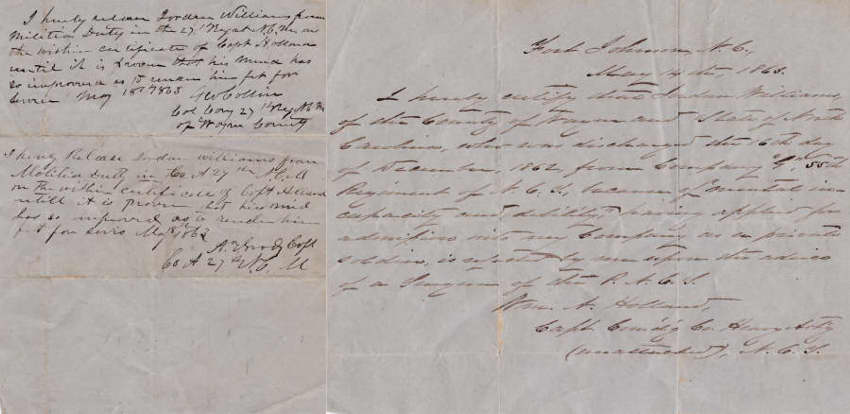 I hereby release Jordan Williams from
Militia Duty in the 27th Regt N.C. on
the within certificate of Capt Holland
until it is proven that his mind has
so improved as to render him fit for
service May 18th 1863
Collier
Col Com 27th Reg N.C.M
of Wayne County
I hereby Release Jordan Williams from
Militia Duty in Co A 27th N.C.M
on the within certificate of Capt Holland
untill it is proven that his mind
has so improved as to render him
fit for servis May 1863
Capt
Co A 27th N.C. M
Fort Johnson, N.C.,
May 4th, 1863.
I hereby certify that Williams
of the County of Wayne and State of North
Carolina, who was discharged the 6th day
of December, 1862, from Company "G", 55th
Regiment of N.C.S., because of "mental in-
capacity and debility," having applied for
admission into my Company as a private
soldier, is rejected by me upon the advice
of a Surgeon of the P.A.C.S.
Wm. A. Holland,
Capt. Comd'g Co. Heavy Arty
(unattached), N.C.S.